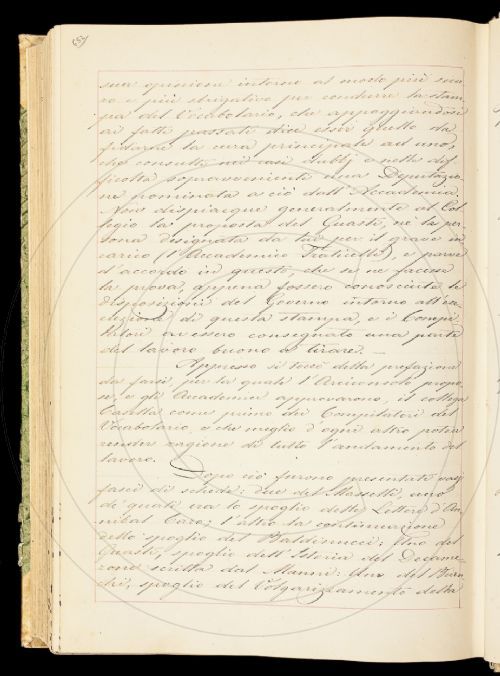 sua opinione intorno al modo più sicu-
ro e più sbrigativo per condurre la stam-
pa del Vocabolario, che appoggiandosi
ai fatti passati dice esser quello da
fidarne la cura principale ad uno,
che consulti nei casi dubbj e nelle dif-
ficoltà sopravvenienti una Deputazio-
ne nominata a ciò dall'Accademia.
Non dispiacque generalmente al Col-
legio la proposta del Guasti, nè la per-
sona designata da lui per il grave in-
carico (l'Accademico), e parve
d'accordo in questo, che se ne facesse
la prova, appena fossero conosciute le
disposizioni del Governo intorno all'ese-
cuzione di questa stampa, e i Compi-
latori avessero consegnato una parte
del lavoro buono a tirare. —
Appresso si toccò della prefazione
da farsi, per la quale l'Arciconsolo propo-
se, e gli Accademici approvarono, il collega
Casella come primo dei Compilatori del
Vocabolario, e che meglio d'ogni altro poteva
render ragione di tutto l'andamento del
lavoro.
Dopo ciò furono presentati varj
fasci di schede: due del Masselli, uno
de' quali era lo spoglio delle Lettere d'An-
nibal Caro; l'altro la continuazione
dello spoglio del Baldinucci; Uno del
Guasti, spoglio dell'Istoria del Decame-
rone scritta dal Manni: Uno del
spoglio del Volgarizzamento della